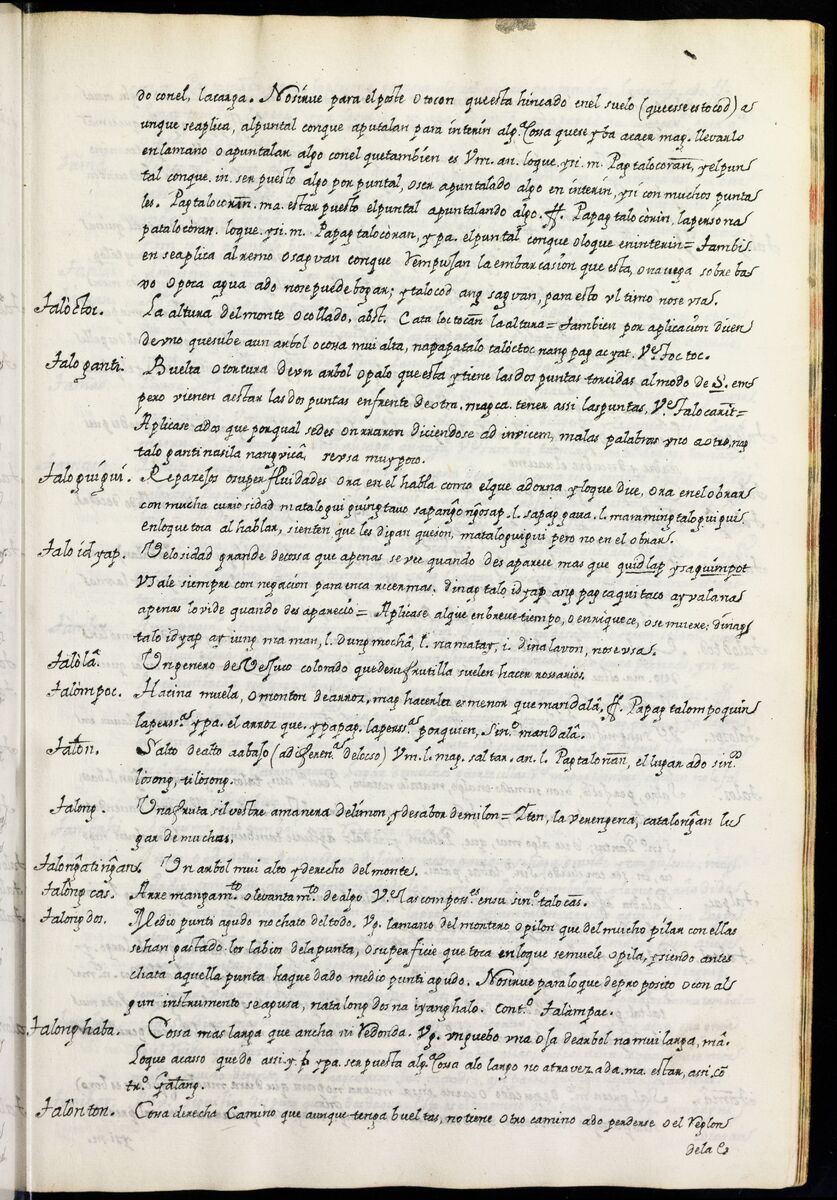 do conel, lacarga. No sirue para el poste otocon queesta hincado enel suelo (queesse es tocod) a
unque seaplica, alpuntal conque aputalan para interin alg.ª Cossa quese yba acaer mag. llevarlo
enlamano o apuntalan algo conel quetambien es Vm. an. loque, ysi. m. Pagtalocoran, yelpun
tal conque. in. ser puesto algo por puntal, oser apuntalado algo en interin, ysi con muchos punta
les. Pagtalocoran. ma. estar puesto elpuntal apuntalando algo. ff. Papag talocorin, lapersona
patalocoran. loque. ysi. m. Papag talocoran, ypa. elpuntal conque oloque eninterin = tambi
en seaplica alremo osagvan conque Rempujan la embarcasion que esta, onavega sobre ba
xo opoca agua ado nosepuede bogar; ytalocod ang sagvan, para esto vltimo nose vsa.
Taloctoc. La altura delmonte ocollado, abst. Cata loctocan la altura = tambien por aplicacion dicen
devno quesube aun arbol ocosa mui alta, napapatalo taloctoc nang pag acyat. Vᵉ toc toc.
Talo ganti. Buelta otortura deun arbol opalo que esta ytiene lasdos puntas torcidas almodo de S. em
pero vienen aestar lasdos puntas enfrente de otra. mag ca. tener assi laspuntas, Vᵉ talocanit =
Aplicase ados que porqual sedes onrraron diciendose ad invicem, malas palabras vno a otro, nag
talo ganti nasila nang vica, sevsa muy poco.
Talo guigui. Reparesos osuperfluidades ora en el habla como elque adorna, yloque dice, ora enel obrar
con mucha curiosidad mataloguiguing tauo sapangongosap. l. sapag gava. l. maraming taloguigui
enloque toca al hablar, sienten que les digan queson, mataloguigui pero no en el obrar.
Talo idyap. Velosidad grande decossa que apenas se vee quando des aparece mas que quidlap ysaquimpot
Vsale siempre con negacion para enca recer mas, dinag talo idyap ang pagcaquitaco ay vala na
apenas lo vide quando des aparecio = Aplicase alque enbreve tiempo, o enriquece, o se muere; dinag
talo idyap ay iung ma man, l. dung mocha, l. namatay, i. dinalavon, nosevsa.
Talola. Un genero de Vejuco colorado quedesu frutilla suelen hacer rossarios.
Talompoc. Hacina muela, o monton de arroz, mag hacerla es menor que mandala, ff. Papag talompoquin
laperss.ª ypa. el arroz que. ypapag. laperss.ª porquien, Sin.º mandala.
Talon. Salto dealto abaxo (adiferen.ª delocso) Vm. l. mag. saltar. an. l. Pagtalonan, el lugar ado sin.º
losong, tilosong.
Talong. Una fruta silvestre amanera delimon, ydesabor demilon = Iten, la verengena, catalongan lu
gar de muchas.
Talongatingan. Un arbol mui alto yderecho delmonte.
Talong cas. Arremangam.ᵗᵒ olevantam.ᵗᵒ de algo. Vᵉ las composs.ᵉˢ ensu sin.º talo cas.
Talong dos. Medio punti agudo no chato deltodo. Vg. lamano del mortero o pilon que del mucho pilar con ellas
sehan gastado los labios delapunta, osuperficie que toca enloque semuele opila, ysiendo antes
chata aquella punta haquedado medio punti agudo. No sirue para loque deproposito ocon al
gun instrumento seagusa, natalongdos na iyang halo. cont.º Talampac.
Talong haba. Cossa mas larga que ancha ni Redonda. Vg. vnguebo vna oja dearbol na mui larga, ma.
Loque acasso quedo assi, y ypa. ser puesta alg.ª Cossa alo largo no atravezada. ma. estar, assi. cō
tr.º Galang.
Talonton. Cosa derecha Camino que aunque tenga bueltas, notiene otro camino ado perderse o el Reglon
dela Es